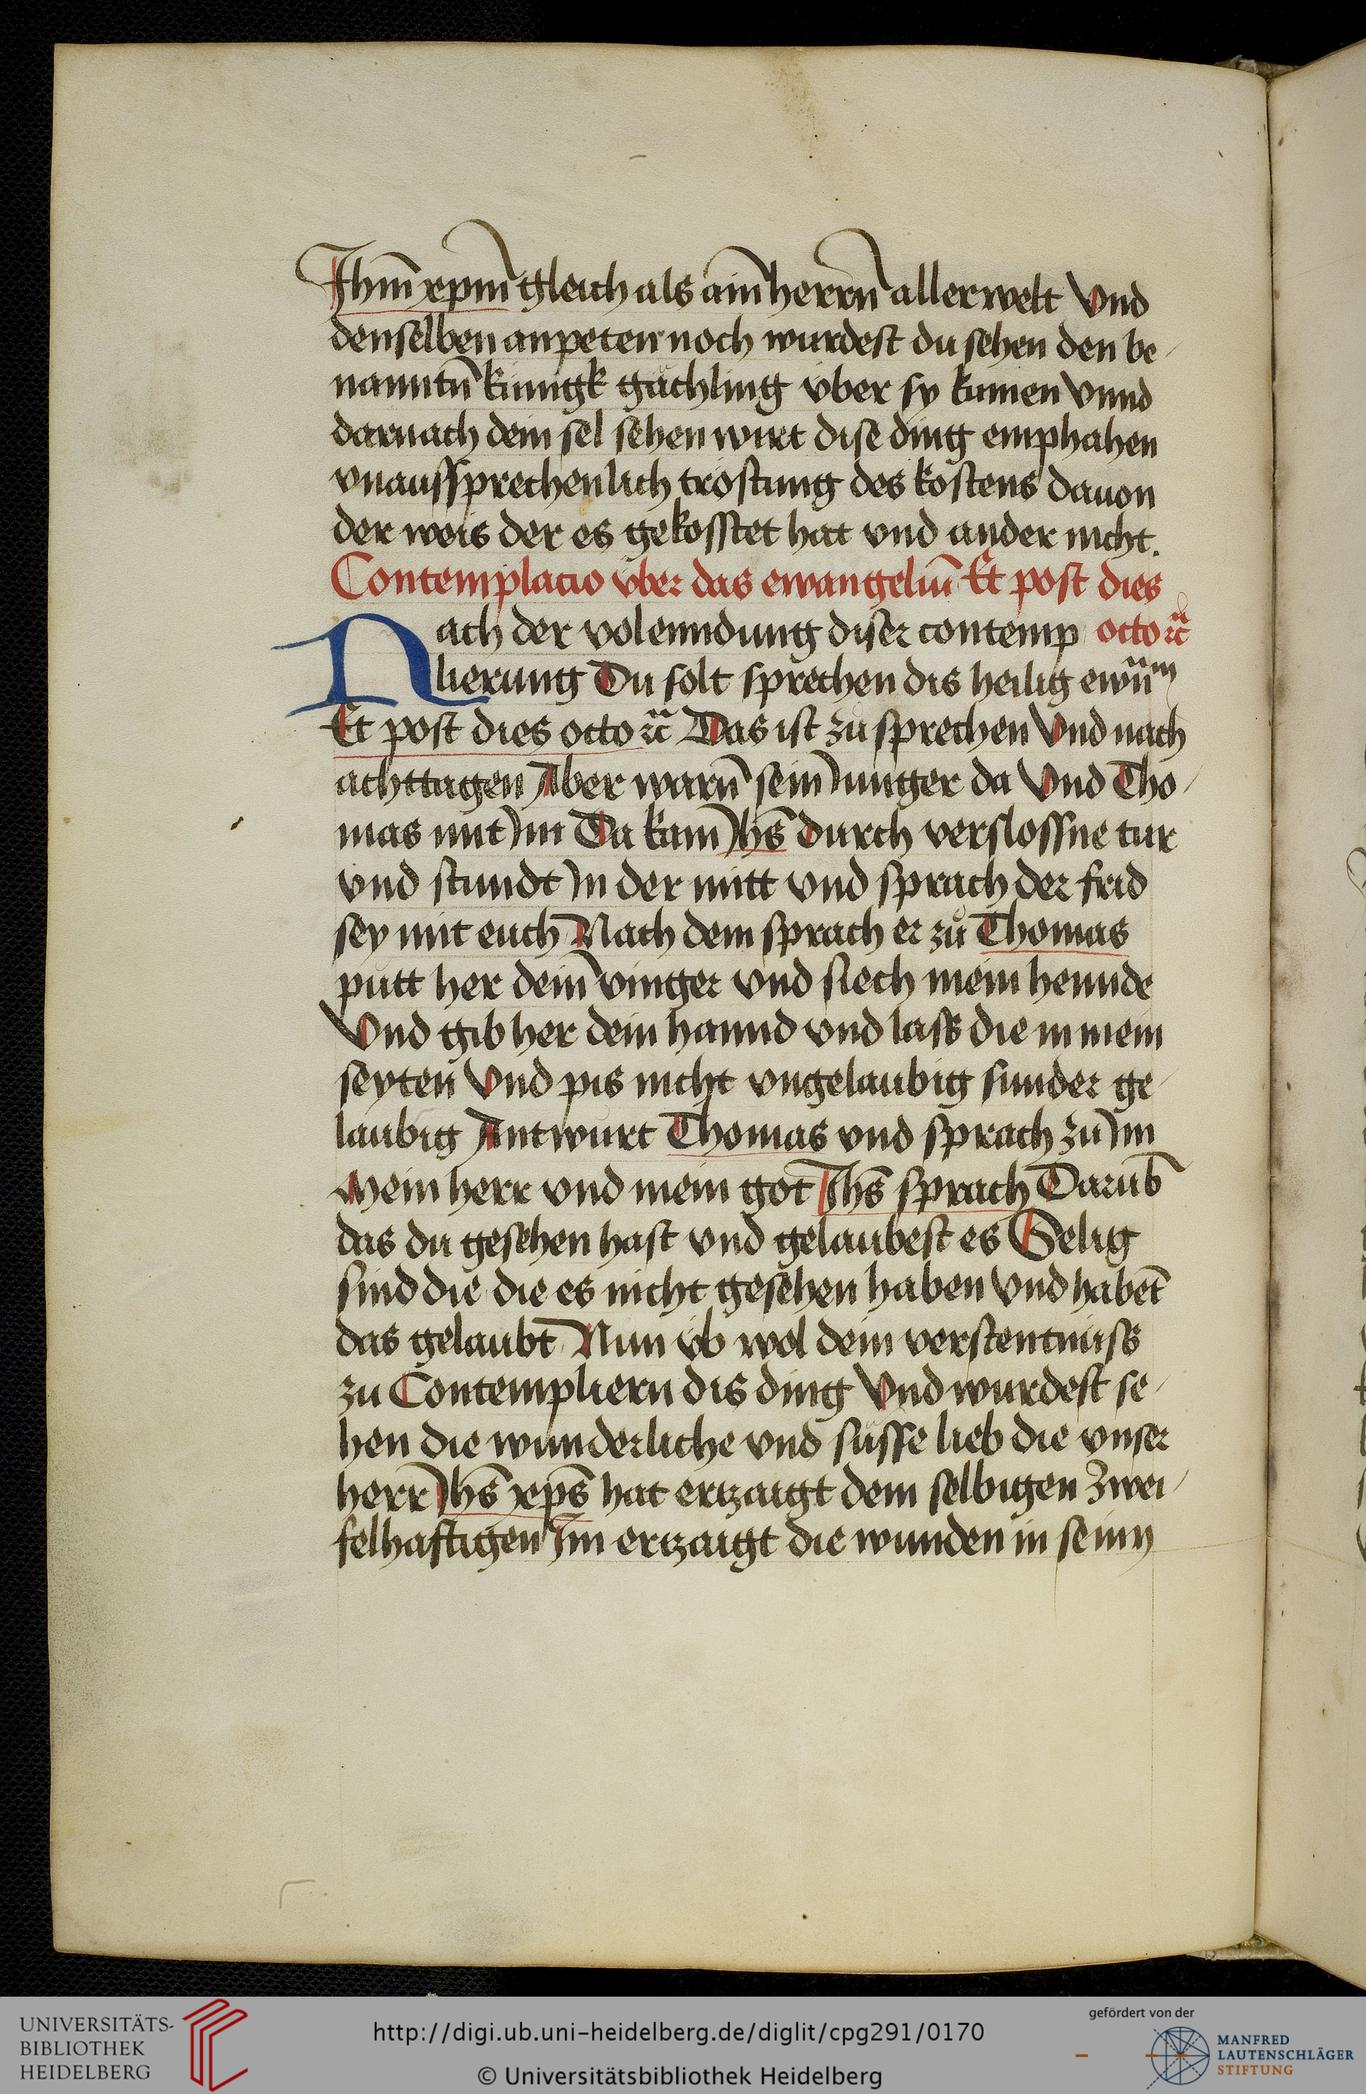 Jhm̄ xpm̄ gleich als aim̄ herrn̄ aller welt Vnd
denselben anpeten noch wurdest du sehen den be-
nanntn̄ künigk gächling über sy kumen Vnnd
darnach dein sel sehen wirt dise ding emphahen
vnaussprechenlich tröstung des kostens dauon
der weis der es gekosstet hat vnd ander nicht.
Contemplacio vber das ewangeliū Et post dies
octo rc̄
Nach der volenndung diser contemp
lierung Du solt sprechen dis heilig ewūm
Et post dies octo rc̄ Das ist zů sprechen Vnd nach
achttagen Aber warn̄ sein Junger da Vnd Tho-
mas mit Jn Da kam Jhs̄ durch verslossne tür
vnd stundt Jn der mitt vnd sprach der frid
sey mit euch Nach dem sprach er zů Thomas
putt her dein̄ vinger vnd siech mein hennde
Vnd gib her dein hannd vnd lass die in mein
seyten Vnd pis nicht vngelaubig sunder ge-
laubig Antwurt Thomas vnd sprach zů Jm
Mein herr vnd mein got Jhs̄ sprach Darūb
das du gesehen hast vnd gelaubest es Selig
sind die die es nicht gesehen haben Vnd habet̄
das gelaubt Nun üb wol dein verstentnüss
zu Contempliern dis ding Vnd wurdest se-
hen die wunderliche vnd süsse lieb die vnser
herr̄ Jhs̄ xps̄ hat ertzaigt dem selbigen Zwei-
felhaftigen Jm ertzaigt die wunden in seinn
UNIVERSITÄTS-
BIBLIOTHEK
HEIDELBERG
http://digi.ub.uni-heidelberg.de/diglit/cpg291/0170
© Universitätsbibliothek Heidelberg
gefördert von der
MANFRED
LAUTENSCHLÄGER
STIFTUNG